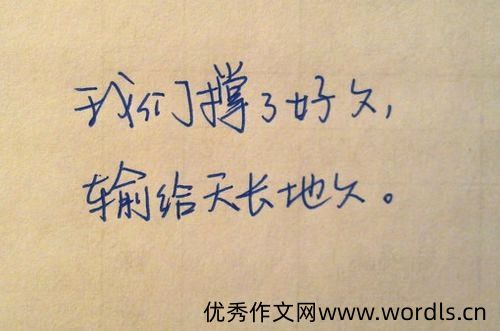 我们撑了好久，
输给天长地久。
优秀作文网www.wordls.cn